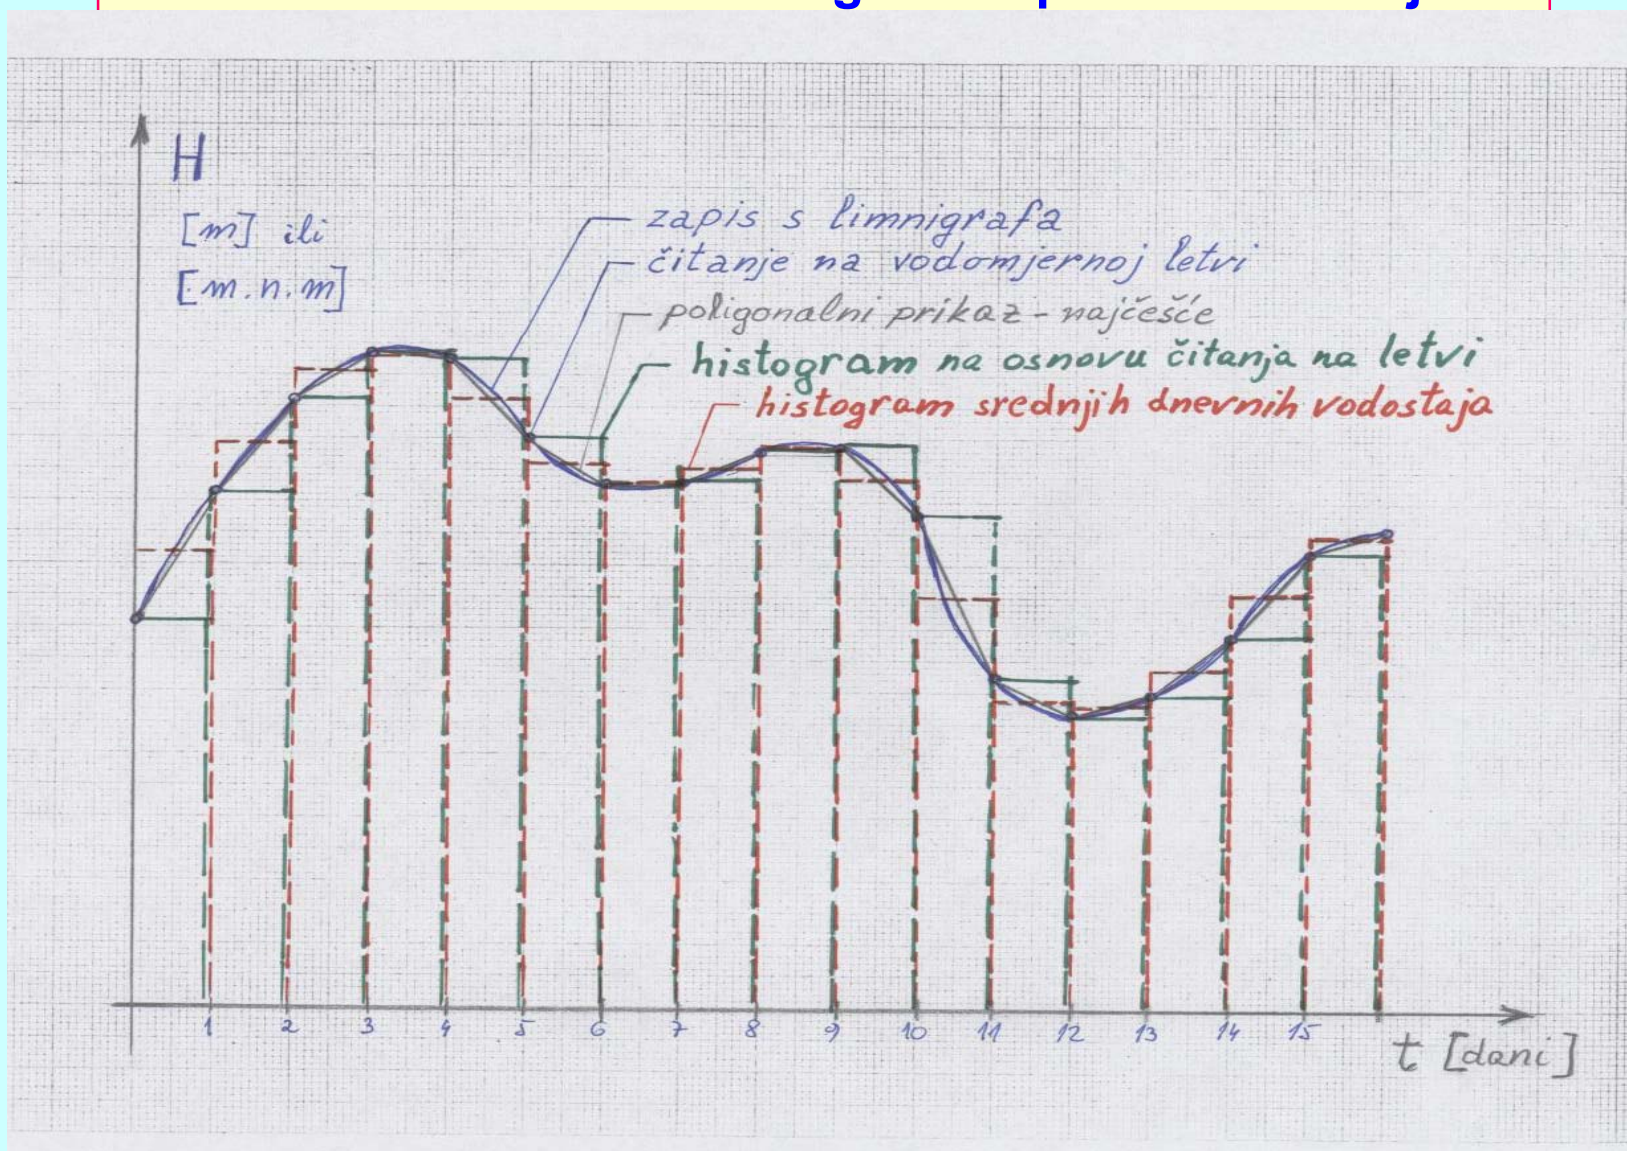 H
[m] ili
[m.n.m]
zapis s limnigrafa
čitanje na vodomjernoj letvi
poligonalni prikaz - najčešće
histogram na osnovu čitanja na letvi
histogram srednjih dnevnih vodostaja
1 2 3 4 5 6 7 8 9 10 11 12 13 14 15
t [dani]